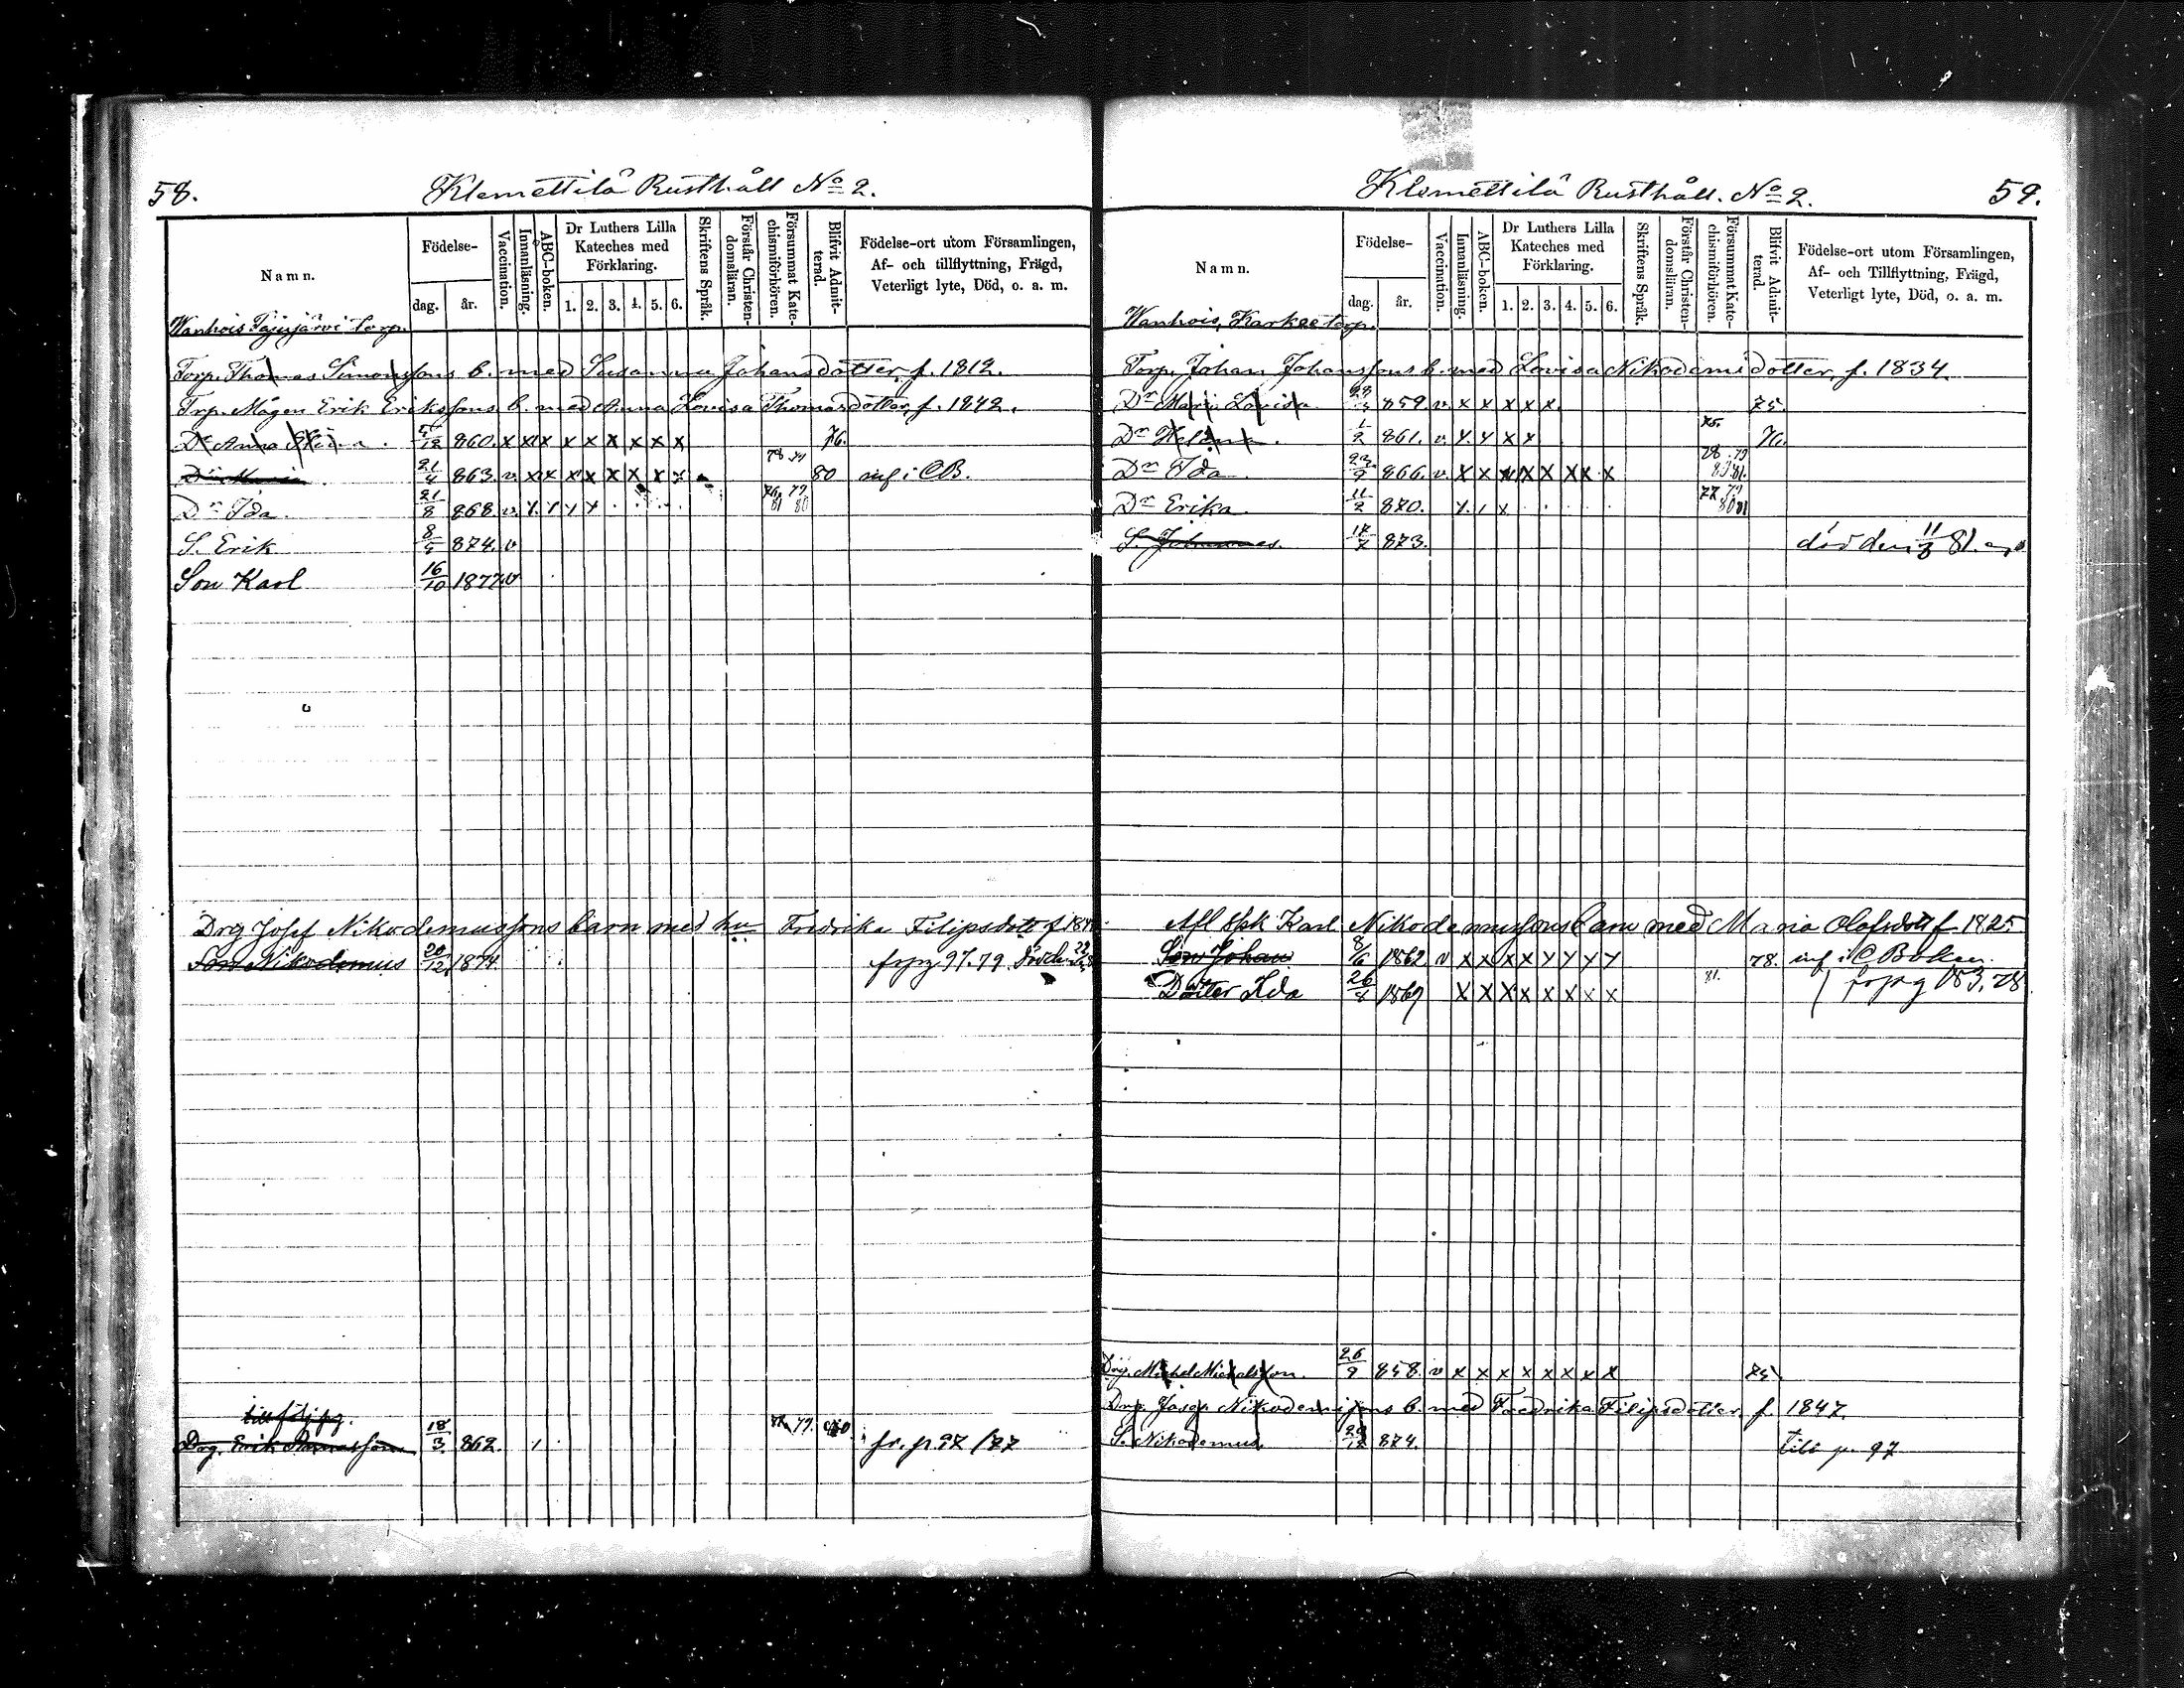 58.
Klemettilä Rusthåll No 2.
Namn.
Födelse-
dag.
år.
Vaccination.
Innanläsning.
ABC-boken.
Dr Luthers Lilla
Kateches med
Förklaring.
1. 2. 3. 4. 5. 6.
Skriftens Språk.
Förstår Christen-
domsläran.
Försummat Kate-
chismiförhören.
Blifvit Admit-
terad.
Födelse-ort utom Församlingen,
Af- och tillflyttning, Frägd,
Veterligt lyte, Död, o. a. m.
Wanhois torp.
Torp. Thomas Simonssons b. med Susanna Johansdotter, f. 1812.
Trp. Mågen Erik Erikssons b. med Anna Lovisa Thomasdotter, f. 1842.
Dr Anna 860. x x x x x x x x x 76.
Dr Maria 21/4 863. v. x x x x x x x x 80 inf i CB.
Dr Ida. 21/8 868. v. x x x x 76. 79 81 80
S. Erik 8/5 874. v
Son Karl 16/10 1877. v
Drg Josef Nikodemussons barn med hu Fredrika Filipsdotr f 184
Son Nikodemus 20/12 1874. frpg 97. 79
till följ pg.
Drg. Erik 18/3 862. 79. fr. p. 97 /77
Klemettilä Rusthåll. No 2.
59.
Namn.
Födelse-
dag.
år.
Vaccination.
Innanläsning.
ABC-boken.
Dr Luthers Lilla
Kateches med
Förklaring.
1. 2. 3. 4. 5. 6.
Skriftens Språk.
Förstår Christen-
domsläran.
Försummat Kate-
chismiförhören.
Blifvit Admit-
terad.
Födelse-ort utom Församlingen,
Af- och Tillflyttning, Frägd,
Veterligt lyte, Död, o. a. m.
Wanhois, Karkee torp.
Torp. Johan Johanssons b. med Lovisa Nikodemidotter, f. 1834.
Dr Maria Lovisa 859. v. x x x x x 75.
Dr Helena. 1/2 861. v. x x x x 75. 76.
Dr Ida 23/9 866. v. x x x x x x x x 78. 79 80 81.
Dr Erika 11/2 870. x x x 77. 79 80 81
S. Johannes. 873. död den 81.
Afl Spk Karl Nikodemussons barn med Maria Olofsdott f 1825
Son Johan 8/6 1862 v x x x x x x x x 78. inf i C Boken.
Dotter Ida 26/8 1869 x x x x x x x x 81. frpg 153, 78
Drg. Michel Michelsson. 26/9 858. v x x x x x x x x 75.
Drg. Josep Nikodemissons b. med Fredrika Filipsdotter, f. 1847.
S. Nikodemus. 20/12 874. till p. 97